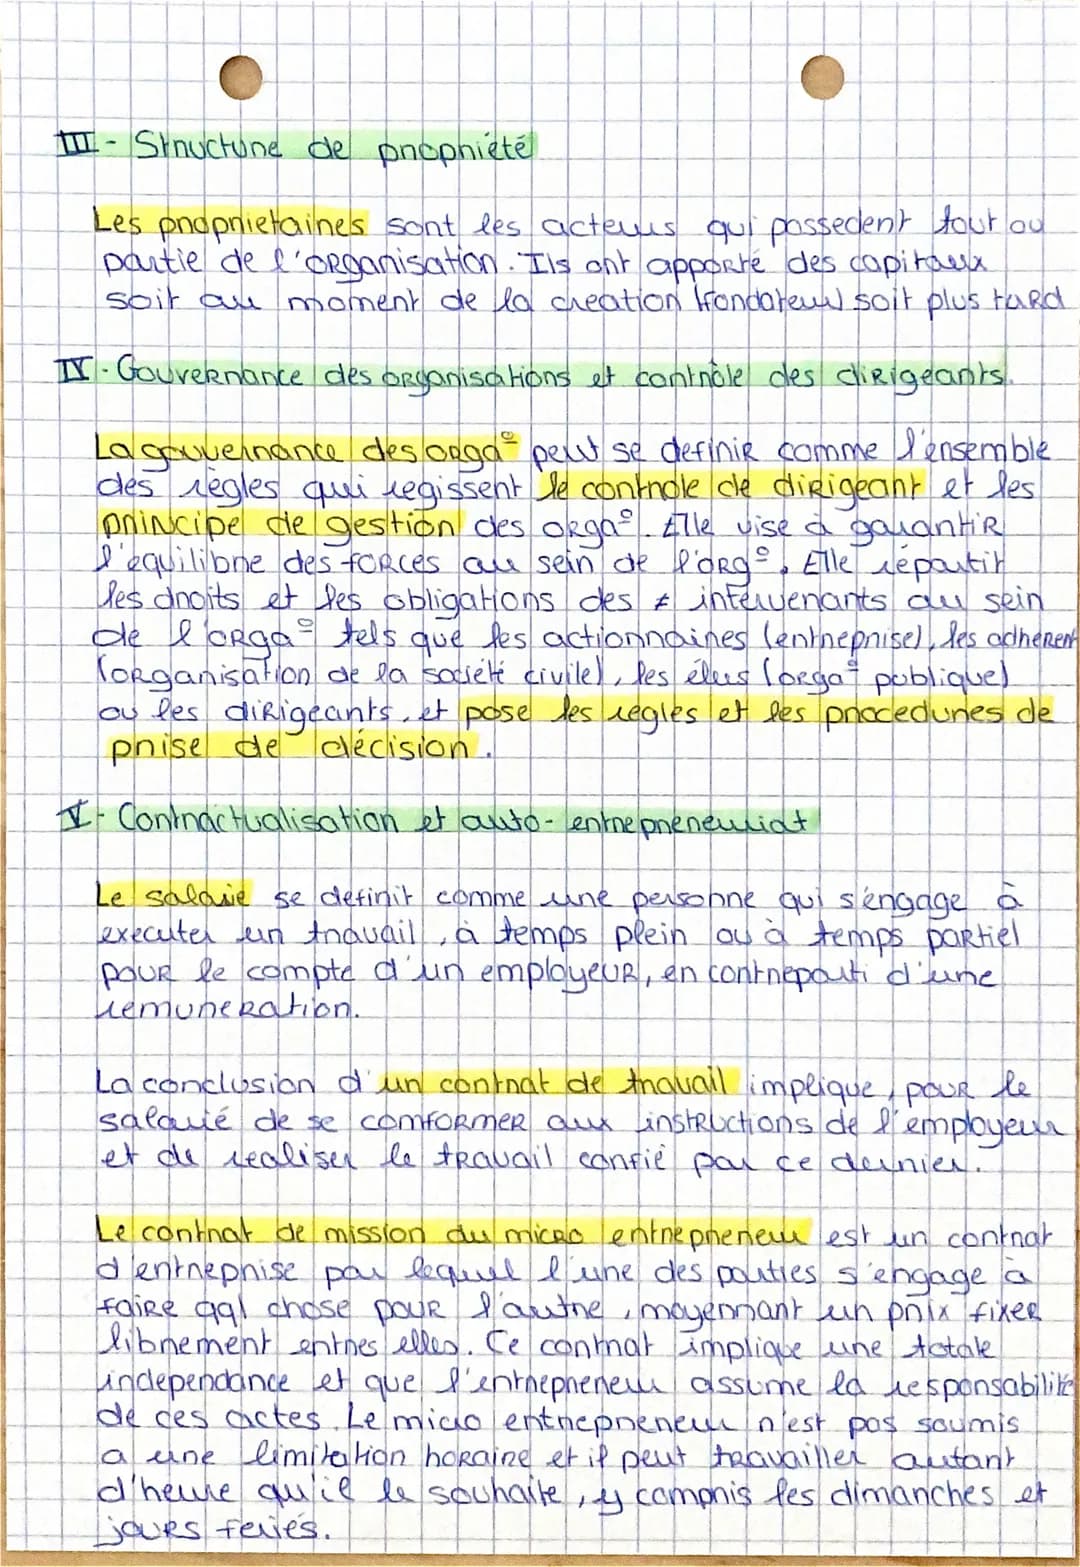 III - Structure de propriété
Les proprietaires sont les acteurs qui possedent tout ou
partie de l'organisation. Ils ont apporté des capitaux
soit au moment de la creation (fondateur) soit plus tard
IV - Gouvernance des organisations et contrôle des dirigeants.
La gouvernance des orga° peut se definir comme l'ensemble
des règles qui regissent le controle de dirigeant et les
principe de gestion des orga°. Elle vise à garantir
l'equilibre des forces au sein de l'org°. Elle répartit
les droits et les obligations des ≠ intervenants au sein
de l'orga° tels que les actionnaires (entreprise), les adherent
(organisation de la société civile), les élus (orga° publique)
ou les dirigeants, et pose les règles et les procedures de
prise de décision.
V - Contractualisation et auto-entrepreneuriat
Le salarie se definit comme une personne qui s'engage à
executer un travail, à temps plein ou à temps partiel
pour le compte d'un employeur, en contreparti d'une
remuneration.
La conclusion d'un contrat de travail implique, pour le
salarié de se comformer aux instructions de l'employeur
et de realiser le travail confié par ce dernier.
Le contrat de mission du micro entrepreneur est un contrat
d'entreprise par lequel l'une des parties s'engage à
faire qql chose pour l'autre, moyennant un prix fixer
librement entres elles. Ce contrat implique une totale
independance et que l'entrepreneur assume la responsabilité
de ces actes. Le micro entrepreneur n'est pas soumis
a une limitation horaire et il peut travailler autant
d'heure qu'il le souhaite, y compris les dimanches et
jours feriés.